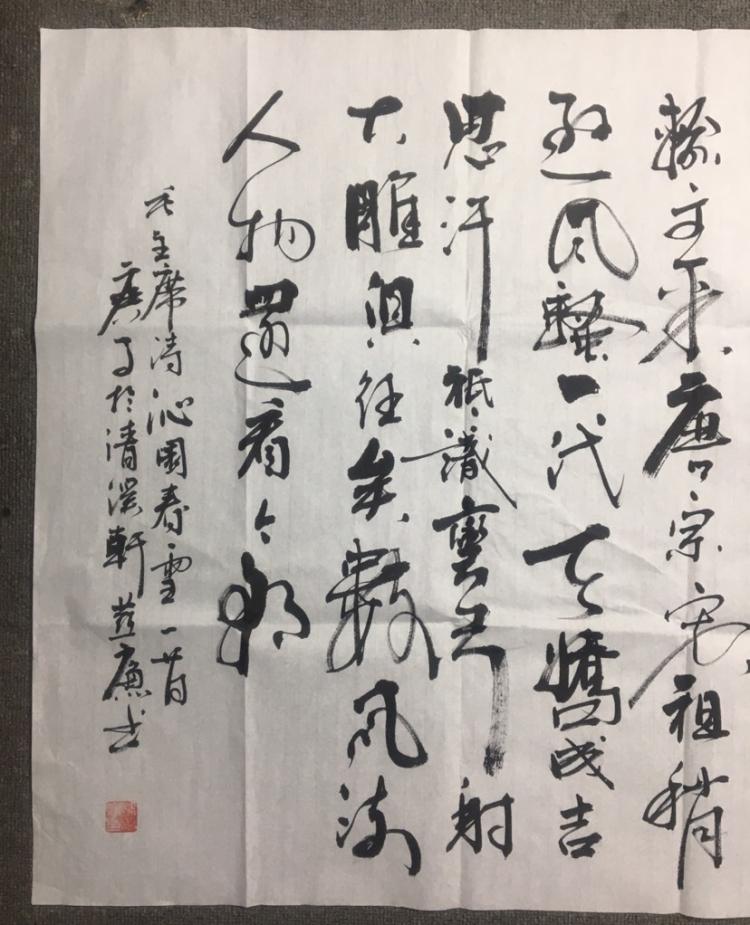 輸文采唐宗宋祖稍
遜風騷一代天驕成吉
思汗祇識彎弓射
大雕俱往矣數風流
人物還看今朝
毛主席詩沁園春雪一首
庚子於清溪軒廉书